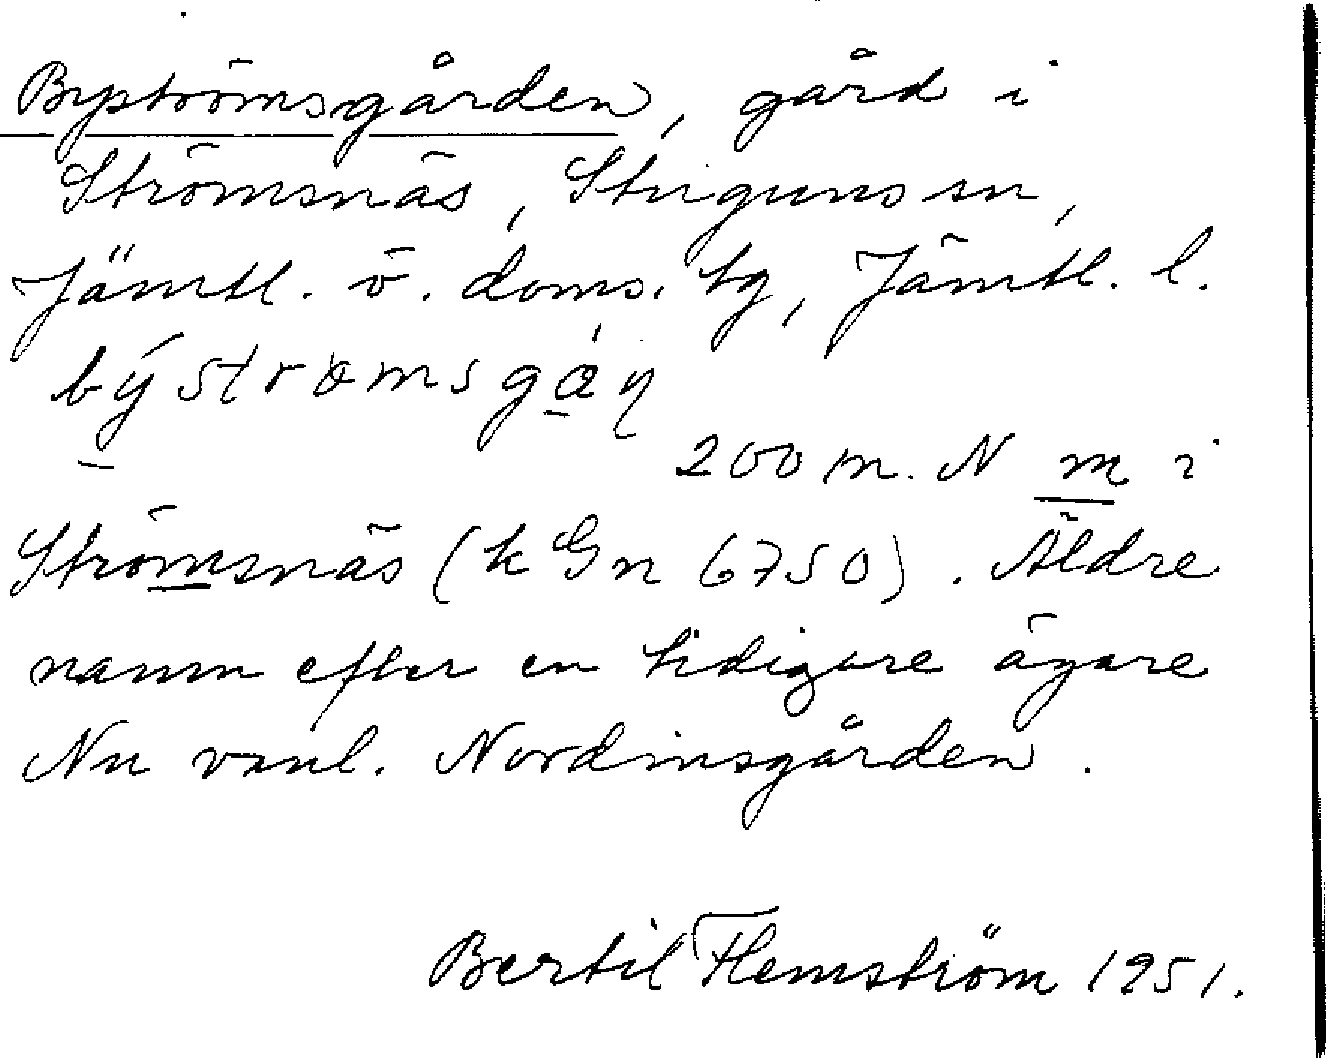 Byströmsgården, gård i
Strömsnäs, Stuguns sn,
Jämtl. ö. doms. tg, Jämtl. l.
býstromsgán
200 m. N m i
Strömsnäs (k Gn 6750). Äldre
namn efter en tidigare ägare
Nu vanl. Nordinsgården.
Bertil Flemström 1951.